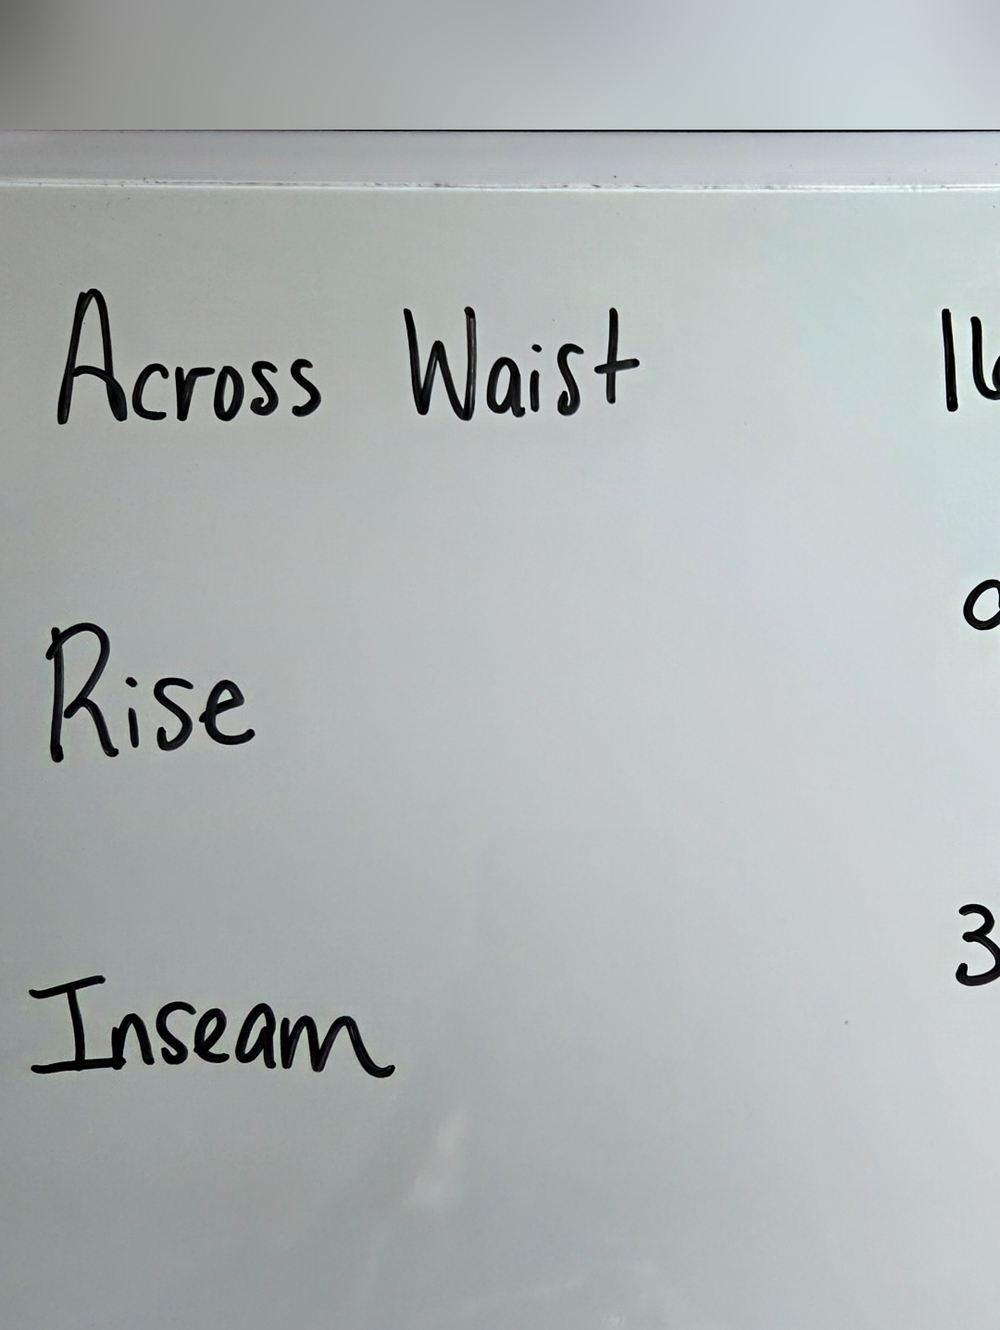 Across Waist
Rise
Inseam